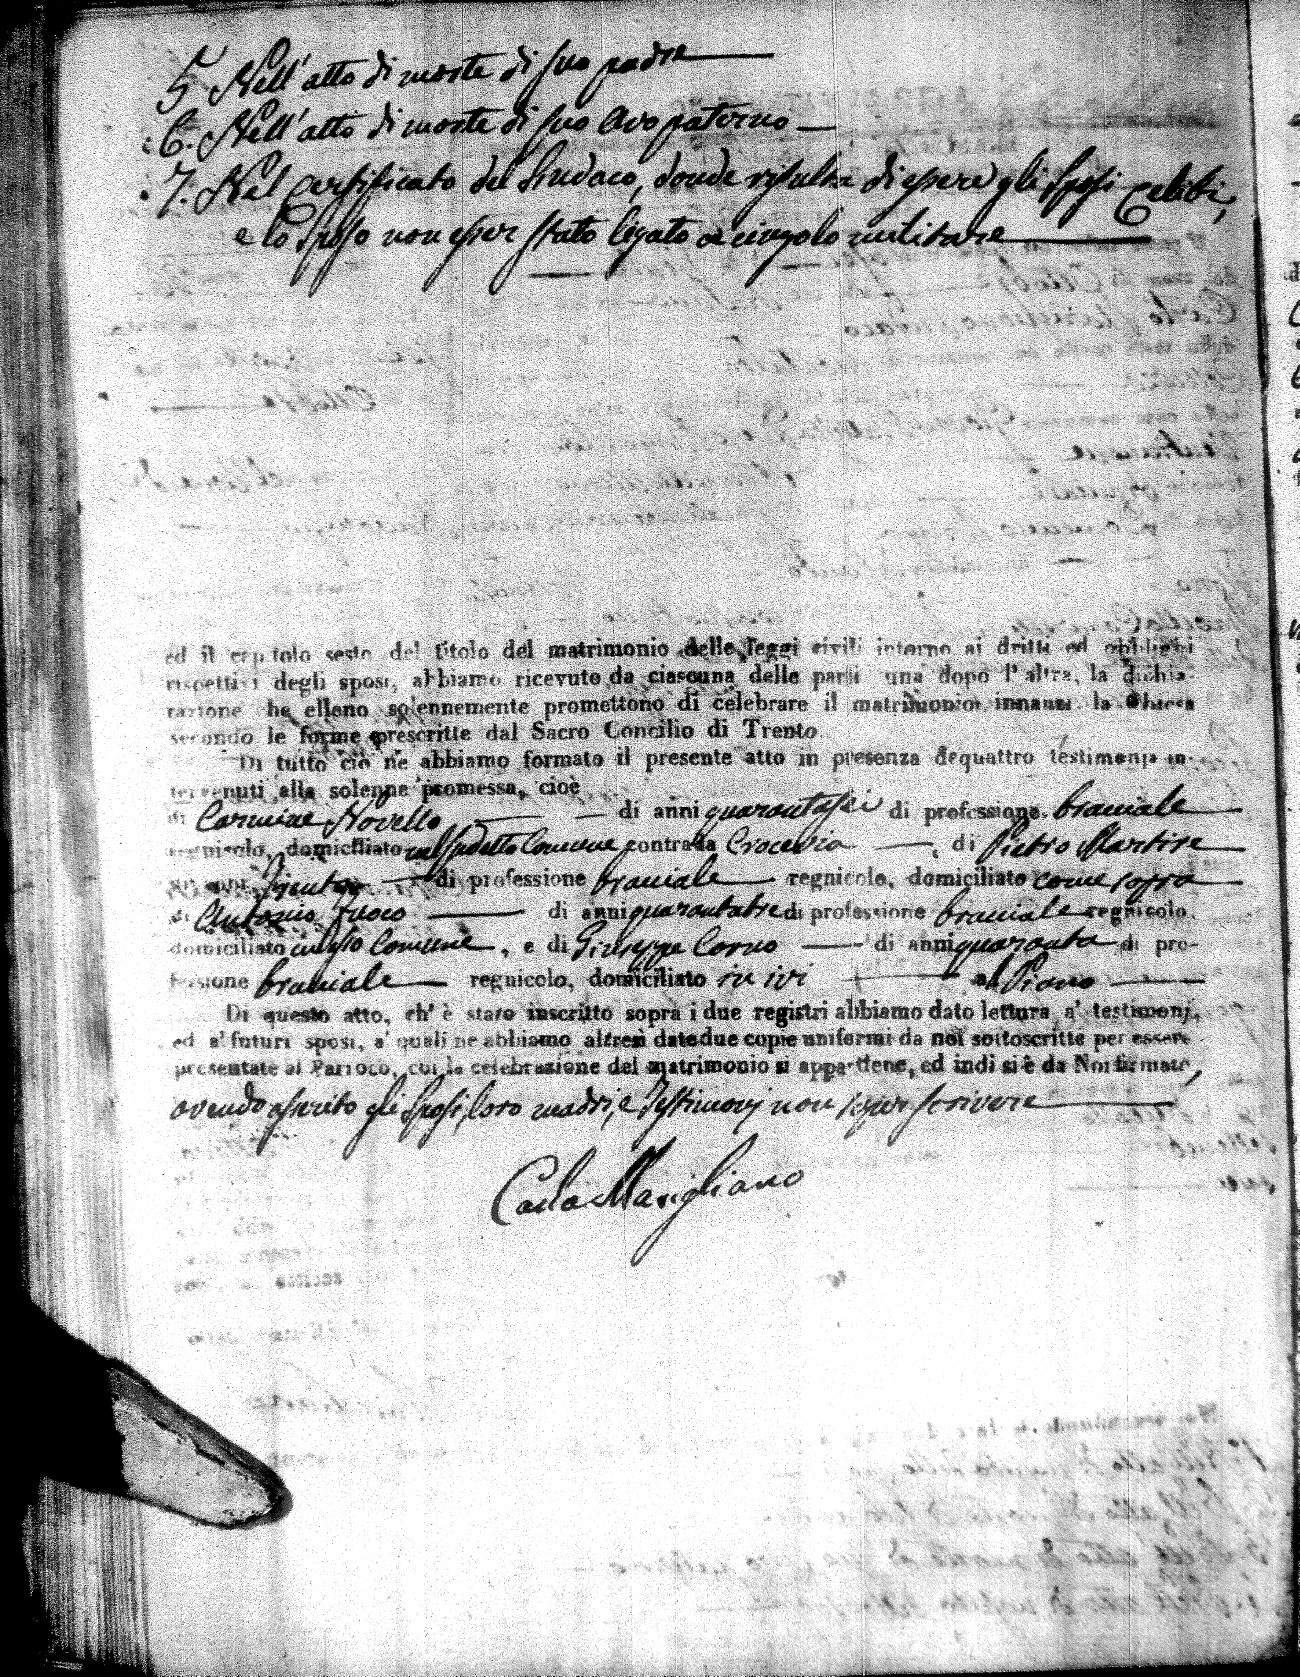 5. Nell'atto di morte di suo padre
6. Nell'atto di morte di suo Avo paterno
7. Nel Certificato del Sindaco, donde risulta di essere gli Sposi Celibi,
e lo Sposo non esser stato ligato a cingolo militare
ed il capitolo sesto del titolo del matrimonio delle leggi civili intorno ai dritti ed obblighi
rispettivi degli sposi, abbiamo ricevuto da ciascuna delle parti una dopo l'altra, la dichia-
razione che elleno solennemente promettono di celebrare il matrimonio innanzi la Chiesa
secondo le forme prescritte dal Sacro Concilio di Trento
Di tutto ciò ne abbiamo formato il presente atto in presenza de quattro testimonj in-
tervenuti alla solenne promessa, cioè
di Carmine Novello di anni quarantasei di professione bracciale
regnicolo, domiciliato nel sudetto Comune contrada Crocevia, di Pietro Martire
di professione bracciale regnicolo, domiciliato come sopra
di Antonio Fuoco di anni quarantatre di professione bracciale regnicolo,
domiciliato in detto Comune, e di Giuseppe Corno di anni quaranta di pro-
fessione bracciale regnicolo, domiciliato in ivi al Piano
Di questo atto, ch' è stato inscritto sopra i due registri abbiamo dato lettura a' testimonj,
ed a' futuri sposi, a' quali ne abbiamo altresì date due copie uniformi da noi sottoscritte per essere
presentate al Parroco, cui la celebrazione del matrimonio si appartiene, ed indi si è da Noi firmato,
avendo asserito gli Sposi, loro madri, e Testimonj non saper scrivere
Carlo Marigliano